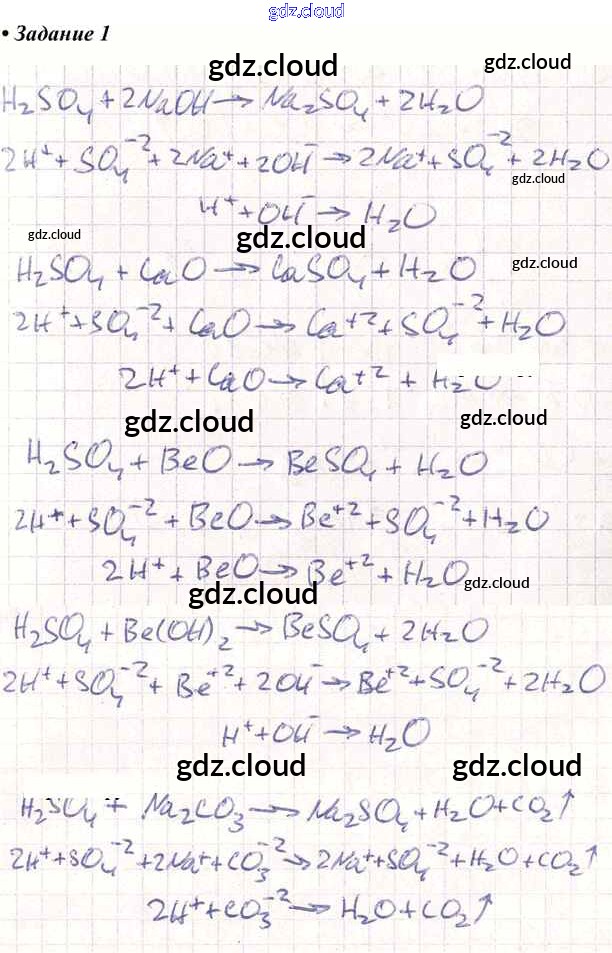 gdz.cloud
• Задание 1
gdz.cloud gdz.cloud
H₂SO₄ + 2NaOH → Na₂SO₄ + 2H₂O
2H⁺ + SO₄⁻² + 2Na⁺ + 2OH⁻ → 2Na⁺ + SO₄⁻² + 2H₂O
gdz.cloud
H⁺ + OH⁻ → H₂O
gdz.cloud gdz.cloud gdz.cloud
H₂SO₄ + CaO → CaSO₄ + H₂O
2H⁺ + SO₄⁻² + CaO → Ca⁺² + SO₄⁻² + H₂O
2H⁺ + CaO → Ca⁺² + H₂O
gdz.cloud gdz.cloud
H₂SO₄ + BeO → BeSO₄ + H₂O
2H⁺ + SO₄⁻² + BeO → Be⁺² + SO₄⁻² + H₂O
2H⁺ + BeO → Be⁺² + H₂O
gdz.cloud gdz.cloud
H₂SO₄ + Be(OH)₂ → BeSO₄ + 2H₂O
2H⁺ + SO₄⁻² + Be⁺² + 2OH⁻ → Be⁺² + SO₄⁻² + 2H₂O
H⁺ + OH⁻ → H₂O
gdz.cloud gdz.cloud
H₂SO₄ + Na₂CO₃ → Na₂SO₄ + H₂O + CO₂↑
2H⁺ + SO₄⁻² + 2Na⁺ + CO₃⁻² → 2Na⁺ + SO₄⁻² + H₂O + CO₂↑
2H⁺ + CO₃⁻² → H₂O + CO₂↑